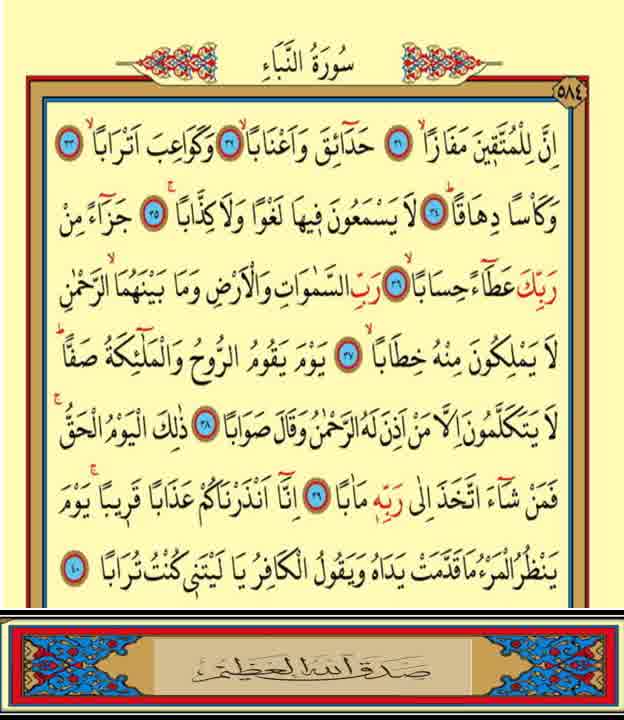 سُورَةُ النَّبَاءِ
٥٨٤
اِنَّ لِلْمُتَّقٖينَ مَفَازًاۙ ٣١ حَدَٓائِقَ وَاَعْنَابًاۙ ٣٢ وَكَوَاعِبَ اَتْرَابًاۙ ٣٣
وَكَأْسًا دِهَاقًاۜ ٣٤ لَا يَسْمَعُونَ فٖيهَا لَغْوًا وَلَا كِذَّابًاۚ ٣٥ جَزَٓاءً مِنْ
رَبِّكَ عَطَٓاءً حِسَابًاۙ ٣٦ رَبِّ السَّمٰوَاتِ وَالْاَرْضِ وَمَا بَيْنَهُمَاۙ الرَّحْمٰنِ
لَا يَمْلِكُونَ مِنْهُ خِطَابًاۙ ٣٧ يَوْمَ يَقُومُ الرُّوحُ وَالْمَلٰٓئِكَةُ صَفًّاۜ
لَا يَتَكَلَّمُونَ اِلَّا مَنْ اَذِنَ لَهُ الرَّحْمٰنُ وَقَالَ صَوَابًا ٣٨ ذٰلِكَ الْيَوْمُ الْحَقُّۚ
فَمَنْ شَٓاءَ اتَّخَذَ اِلٰى رَبِّهٖ مَاٰبًا ٣٩ اِنَّٓا اَنْذَرْنَاكُمْ عَذَابًا قَرٖيبًاۚ يَوْمَ
يَنْظُرُ الْمَرْءُ مَا قَدَّمَتْ يَدَاهُ وَيَقُولُ الْكَافِرُ يَا لَيْتَنٖي كُنْتُ تُرَابًا ٤٠
صَدَقَ اللهُ الْعَظِيم